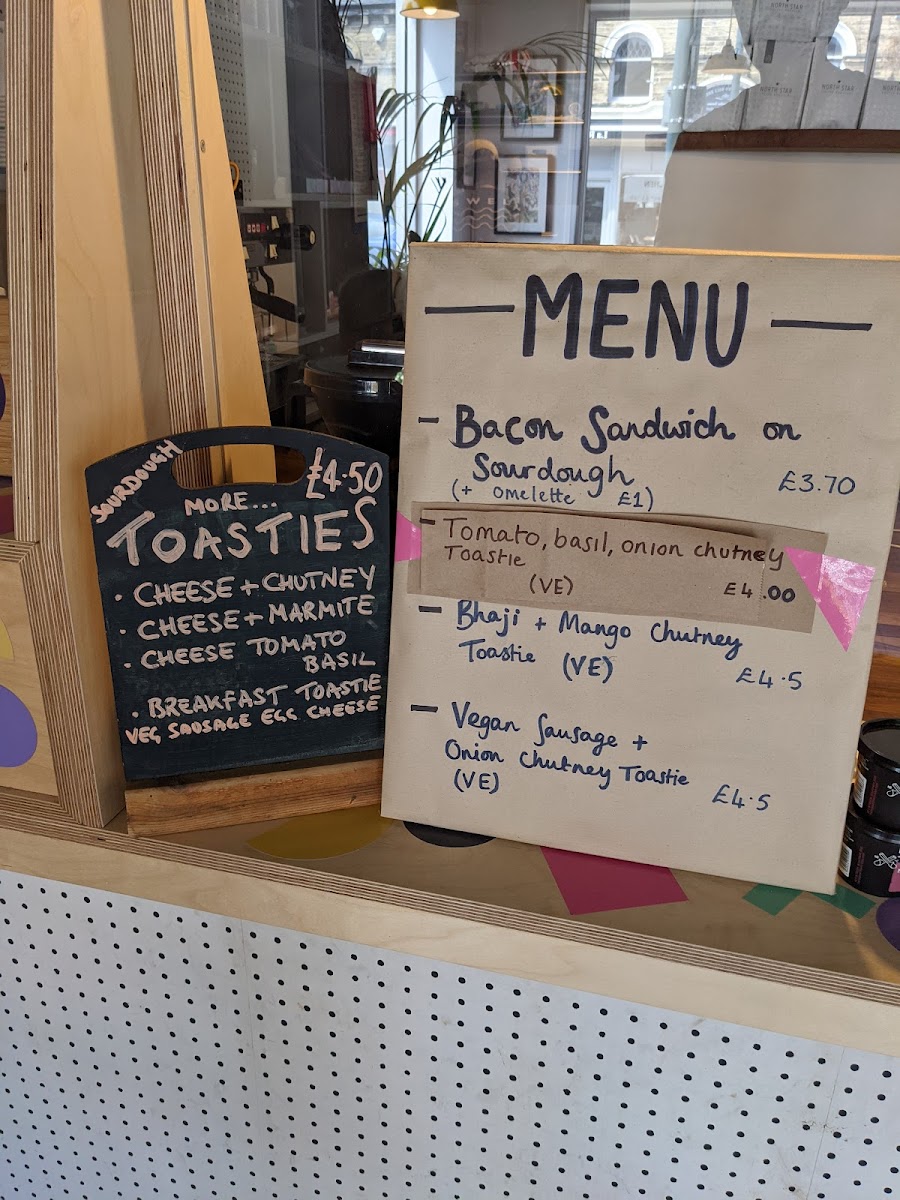 SOURDOUGH
£4.50
MORE...
TOASTIES
· CHEESE + CHUTNEY
· CHEESE + MARMITE
· CHEESE TOMATO
BASIL
· BREAKFAST TOASTIE
VEG SAUSAGE EGG CHEESE
— MENU —
- Bacon Sandwich on
Sourdough £3.70
(+ omelette £1)
- Tomato, basil, onion chutney
Toastie
(VE) £4.00
- Bhaji + Mango Chutney
Toastie (VE) £4.5
- Vegan Sausage +
Onion Chutney Toastie
(VE) £4.5